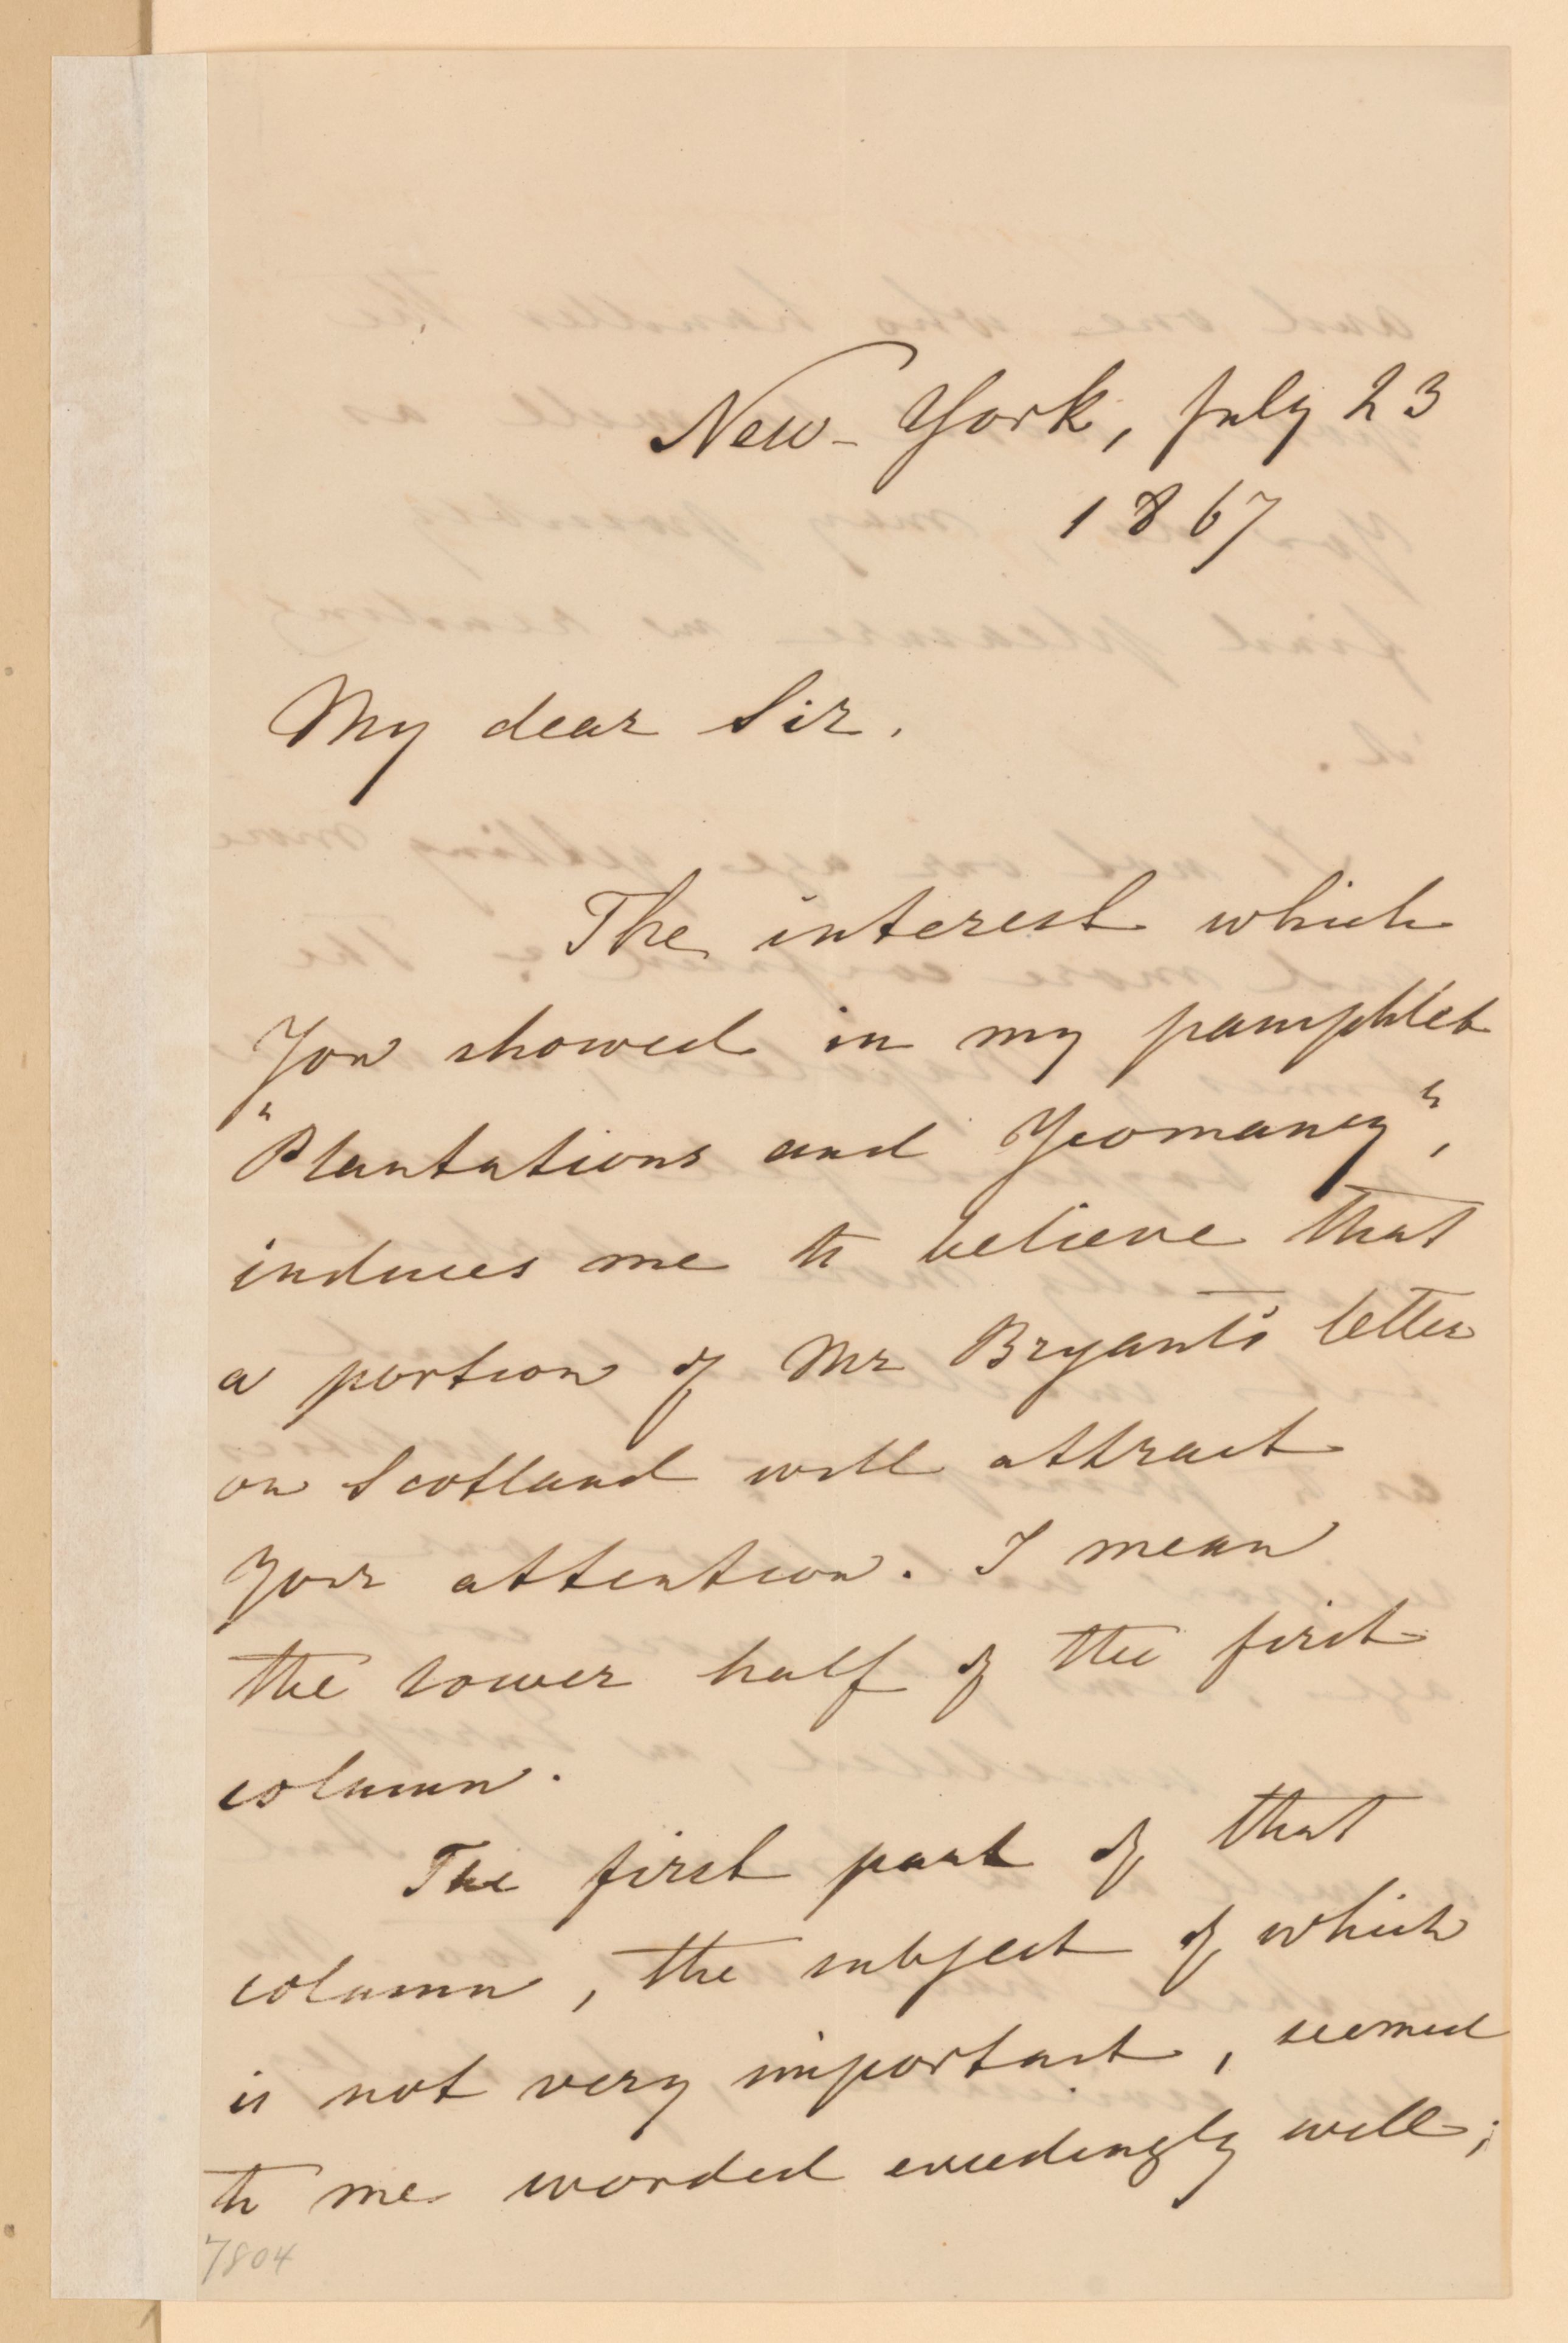 New-York, July 23
1867
My dear Sir.
The interest which
you showed in my pamphlet
"Plantations and Yeomanry",
induces me to believe that
a portion of Mr Bryant's letter
on Scotland will attract
your attention. I mean
the lower half of the first
column.
The first part of that
column, the subject of which
is not very important, seemed
to me worded exceedingly well;
7804